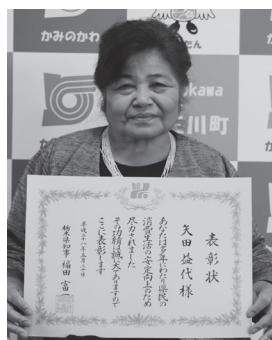 かみのかわ
たん
okawa
川町
表彰状
矢田益代様
あなたは多年にわたり県民の
消費生活の安定向上のため
尽力されました
その功績は誠に大でありますので
ここに表彰します
平成二十八年五月
栃木県知事 福田富一